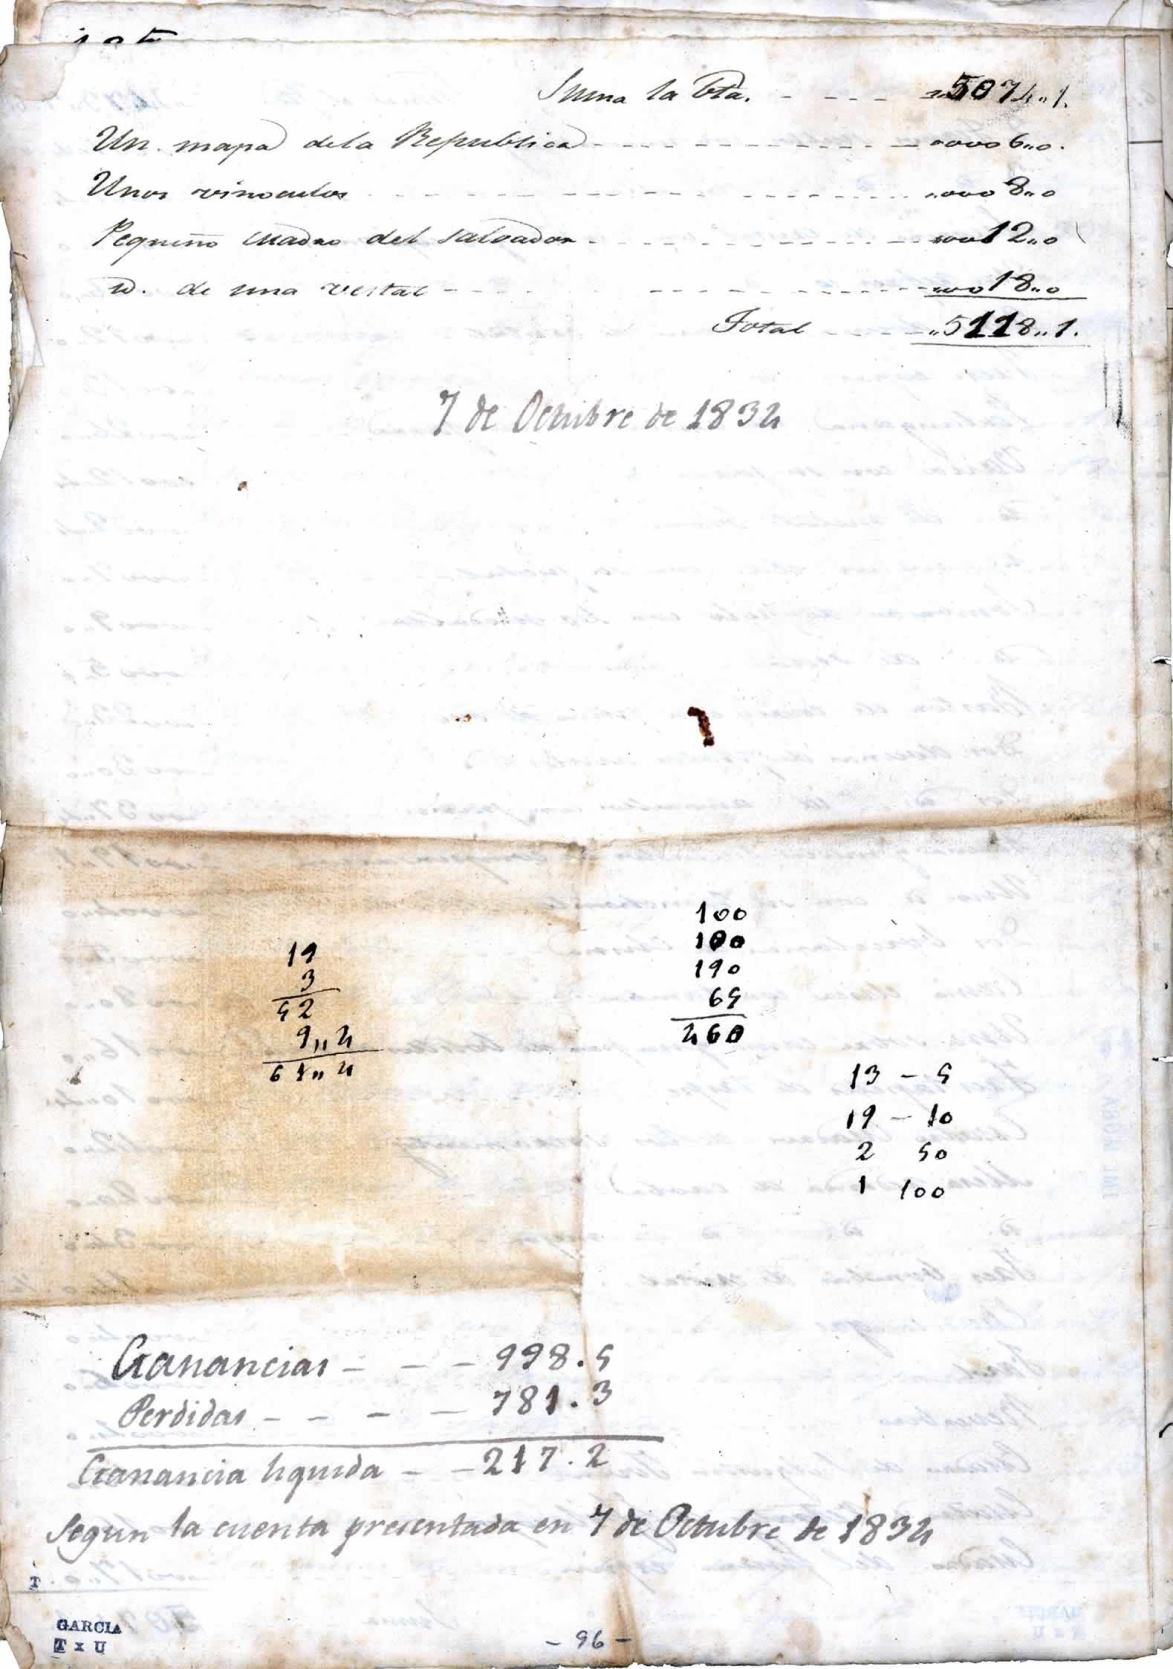 Suma la Bta. - - - - 5074,,1.
Un. mapa dela Republica - - - - - - - - - - - 0006,,0.
Unos vinoculos - - - - - - - - - - - ,,0008,,0
Pequeño cuadro del salvador - - - - - - - - - 0012,,0
id. de una vestal - - - - - - - - - - - - - 0018,,0
Total - - - - ,,5118,,1.
7 de Octubre de 1834
19
3
52
9,,4
61,,4
100
100
190
65
460
13 - 5
19 - 10
2 50
1 100
Ganancias - - - 998.5
Perdidas - - - - 781.3
Ganancia liquida - - 217.2
Segun la cuenta presentada en 7 de Octubre de 1834
T.
GARCIA
T x U
- 96 -